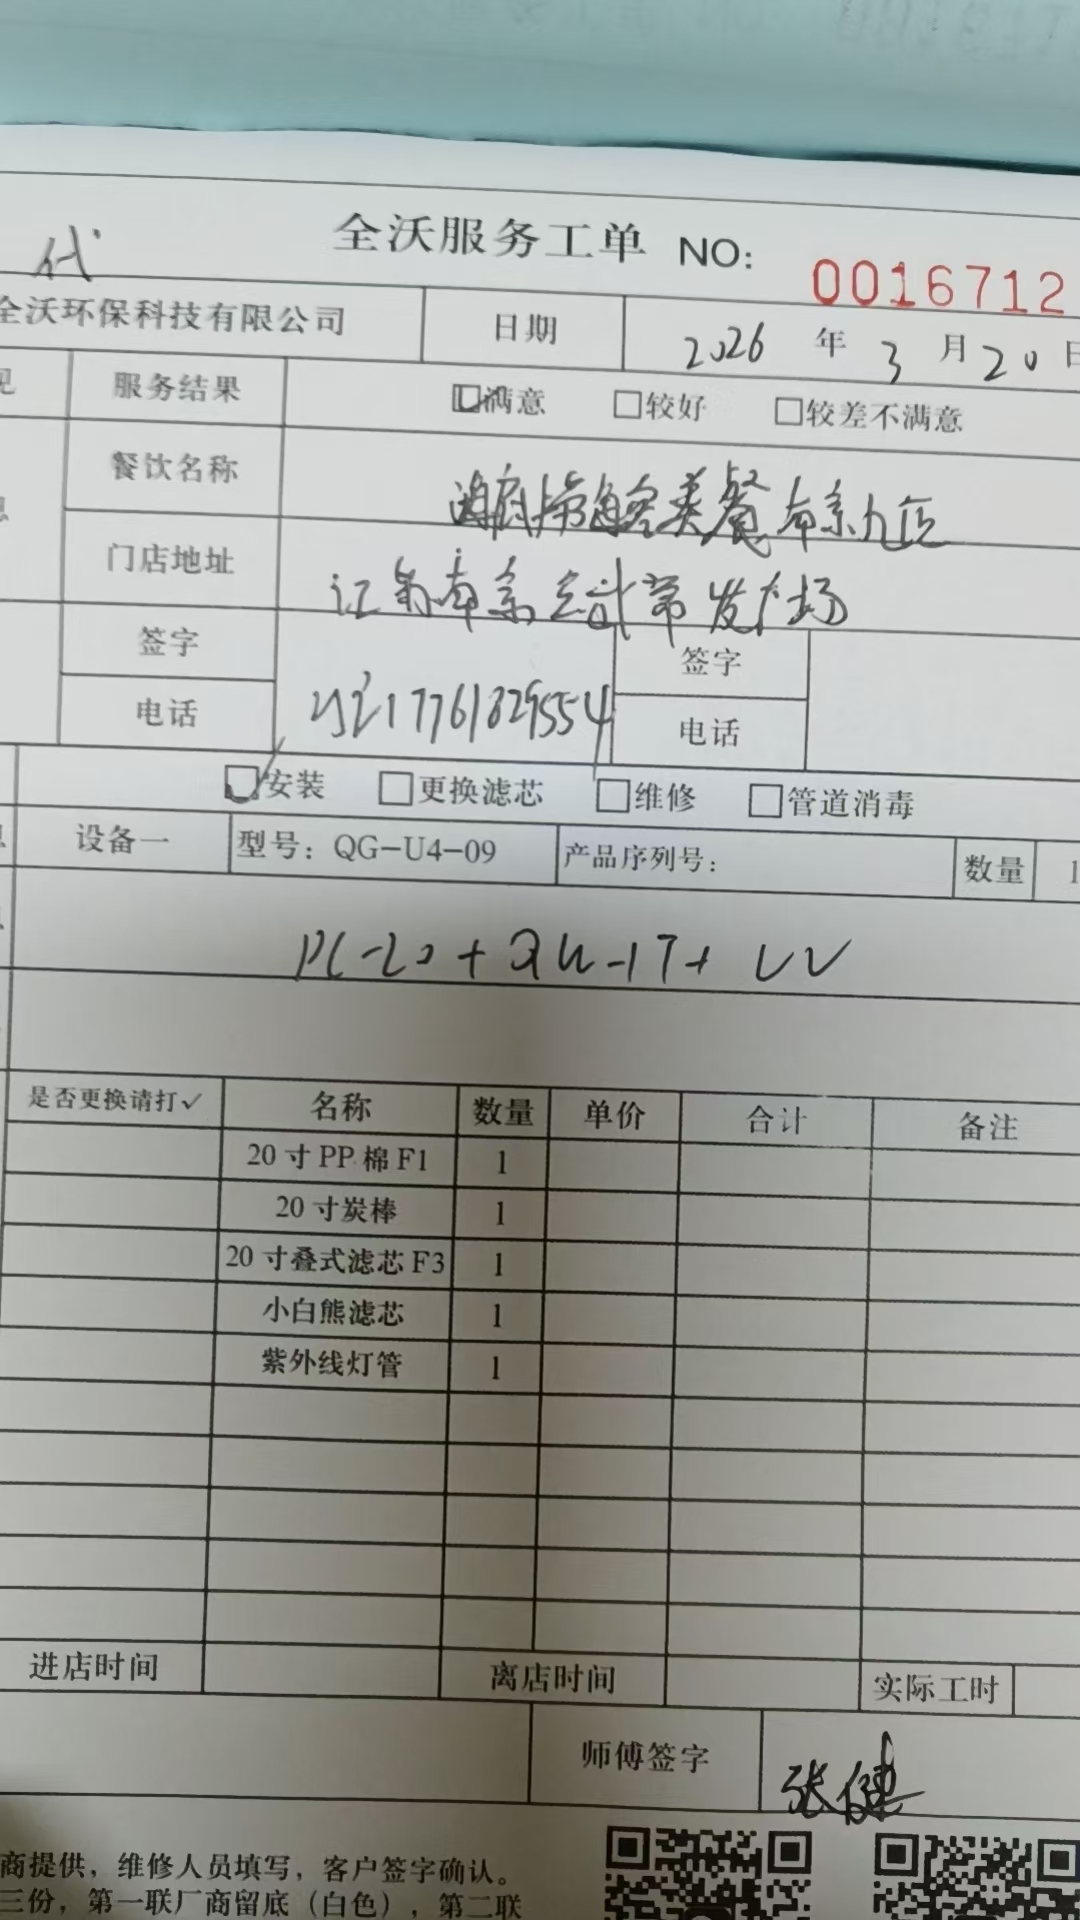 代
全沃服务工单 NO: 0016712
全沃环保科技有限公司 日期 2026 年 3 月 20 日
见 服务结果 ☑满意 □较好 □较差不满意
息 餐饮名称
门店地址 发广场
签字 签字
电话 17761829554 电话
☑安装 □更换滤芯 □维修 □管道消毒
设备一 型号：QG-U4-09 产品序列号： 数量 1
+ UV
是否更换请打✓ 名称 数量 单价 合计 备注
20 寸 PP 棉 F1 1
20 寸炭棒 1
20 寸叠式滤芯 F3 1
小白熊滤芯 1
紫外线灯管 1
进店时间 离店时间 实际工时
师傅签字 张健
商提供，维修人员填写，客户签字确认。
三份，第一联厂商留底（白色），第二联